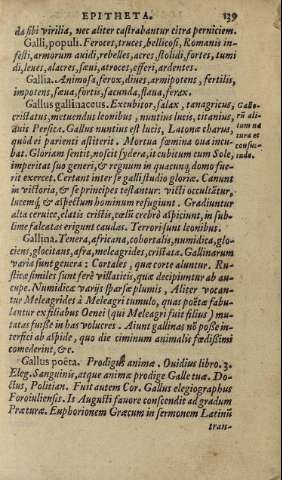 EPITHETA. 139
da sibi virilia, nec aliter castrabantur citra perniciem.
Galli, populi. Feroces, truces, bellicosi, Romanis in-
festi, armorum avidi, rebelles, acres, stolidi, fortes, tumi
di, leues, alacres, saeui, atroces, efferi, ardentes.
Gallia. Animosa, ferox, diues, armipotens, fertilis,
impotens, saeua, fortis, facunda, flaua, ferax.
Gallus gallinaceus. Excubitor, salax, tanagricus,
cristatus, metuendus leonibus, nuntius lucis, titanius,
auis Persica. Gallus nuntius est lucis, Latonae charus,
quòd ei parienti astiterit. Mortua foemina oua incu-
bat. Gloriam sentit, noscit sydera, it cubitum cum Sole,
imperitat suo generi, & regnum in quacunq; domo fue-
rit exercet. Certant inter se galli studio gloriae. Canunt
in victoria, & se principes testantur: victi occultãtur,
lucemq́; & aspectum hominum refugiunt. Gradiuntur
alta ceruice, elatis cristis, coelũ crebrò aspiciunt, in sub-
lime falcatas erigunt caudas. Terrori sunt leonibus.
Gallina. Tenera, africana, cohortalis, numidica, glo-
ciens, glocitans, afra, meleagrides, cristata. Gallinarum
varia sunt genera: Cortales, quae corte aluntur. Ru-
sticae similes sunt ferè villaticis, quae decipiuntur ab au-
cupe. Numidicae varijs sparsae plumis, Aliter vocan-
tur Meleagrides à Meleagri tumulo, quas poëtae fabu-
lantur ex filiabus Oenei (qui Meleagri fuit filius) mu-
tatas fuisse in has volucres. Aiunt gallinas nõ posse in-
terfici ab aspide, quo die ciminum animalis foedissimi
comederint, &c.
Gallus poëta. Prodigus animae. Ouidius libro. 3.
Eleg. Sanguinis, atque animae prodige Galle tuae. Do-
ctus, Politian. Fuit autem Cor. Gallus elegiographus
Foroiuliensis. Is Augusti fauore conscendit ad gradum
Praeturae. Euphorionem Graecum in sermonem Latinũ
tran-
Gallo-
rũ ali-
tum na
tura et
consue-
tudo.